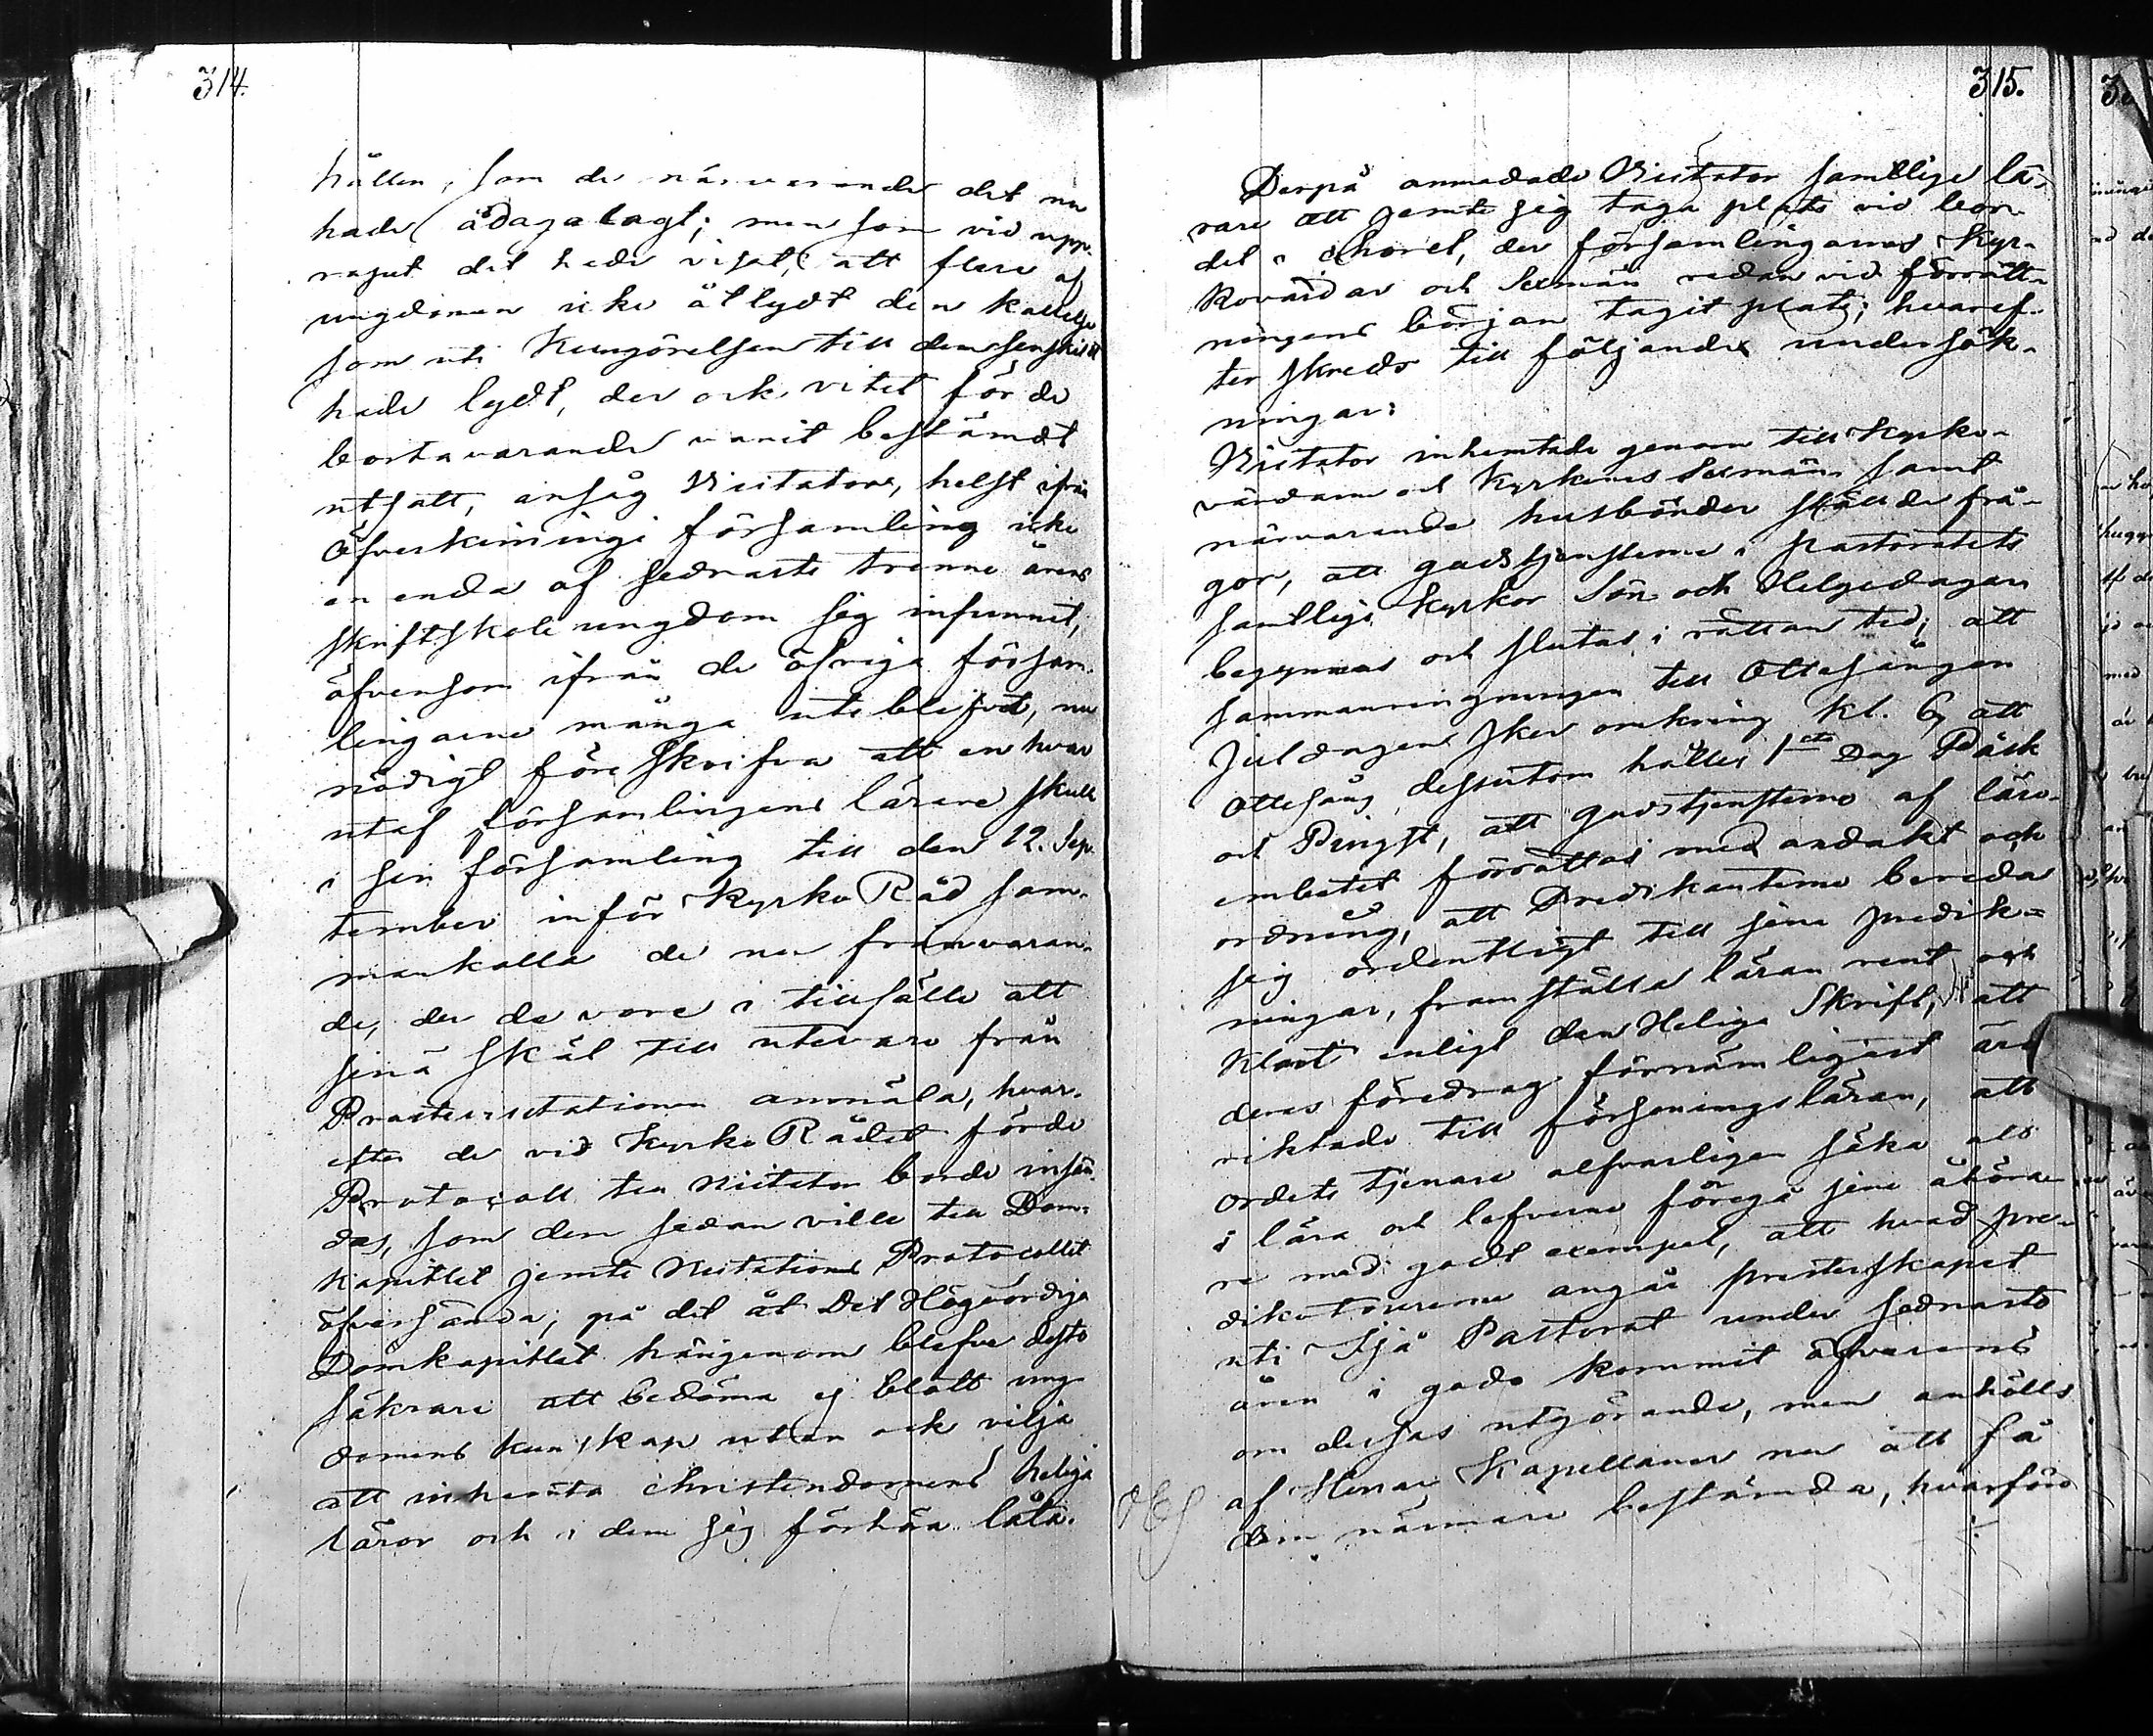 314.
hållen, som de närvarande det nu
hade ådagalagt; men som vid upp-
ropet det hade visat, att flere af
ungdomen icke åtlydt den kallelse
som uti Kungörelsen till dem
hade lydt, der ock vitet för de
bortavarande varit bestämdt
utsatt, ansåg Visitator, helst ifrån
Öfverkiminge församling icke
en enda af sednaste trenne årens
skriftskole ungdom sig infunnit,
äfvensom ifrån de öfriga försam-
lingarne många uteblifvit, nu
nödigtföreskrifva att en hvar
utaf församlingens lärare skulle
i sin församling till den 12. Sep-
tember inför Kyrko Råd sam-
mankalla de nu frånvaran-
de, der de vore i tillfälle att
sina skäl till utevaro från
Prostevisitationen anmäla, hvar-
efter de vid Kyrko Rådet förde
Protocoll till Visitator borde insän-
das, som dem sedan ville till Dom-
kapitlet jemte Visitations Protocollet
öfversända; på det åt Det Högvördige
Domkapitlet härigenom blefve desto
säkrare att bedöma ej blott ung-
domens kunskap utan ock vilja
att inhemta christendomens heliga
läror och i dem sig förhöra låta.
315.
Derpå anmodade Visitator samtlige lä-
rare att jemte sig taga plats vid bor-
det i choret, der församlingarnes Kyr-
kovärdar och Sexmän redan vid förrätt-
ningens början tagit plats; hvaref-
ter skreds till följande undersök-
ningar:
Visitator inhemtade genom till Kyrko-
värdarne och Kyrkones Sexmän samt
närvarande husbönder ställde frå-
gor, att gudstjensterne i pastoratets
samtlige kyrkor Sön- och Helgedagar
begynnas och slutas i rättan tid; att
sammanringningen till Ottesången
Juldagen sker omkring kl. 6, att
Ottesång dessutom hålles 1sta Dag Påsk
och Pingst, att gudstjensterne af läro-
embetet förrättas med andakt och
ordning, att Predikanterne bereda
sig ordentligt till sine predik-
ningar, framställa läran rent och
klart enligt den Heliga Skrift, att
deras föredrag förnämligast äro
riktade till försoningsläran, att
ordets tjenare alfvarligen söka att
i lära och lefverne föregå sine åhöra-
re med godt exempel, att hvad pre-
dikoturerne angår presterskapet
uti Ijå Pastorat under sednaste
åren i godo kommit öfverens
om dessas utgörande, men anhölls
af Herrar Kapellaner nu att få
dem närmare bestämda, hvarföre